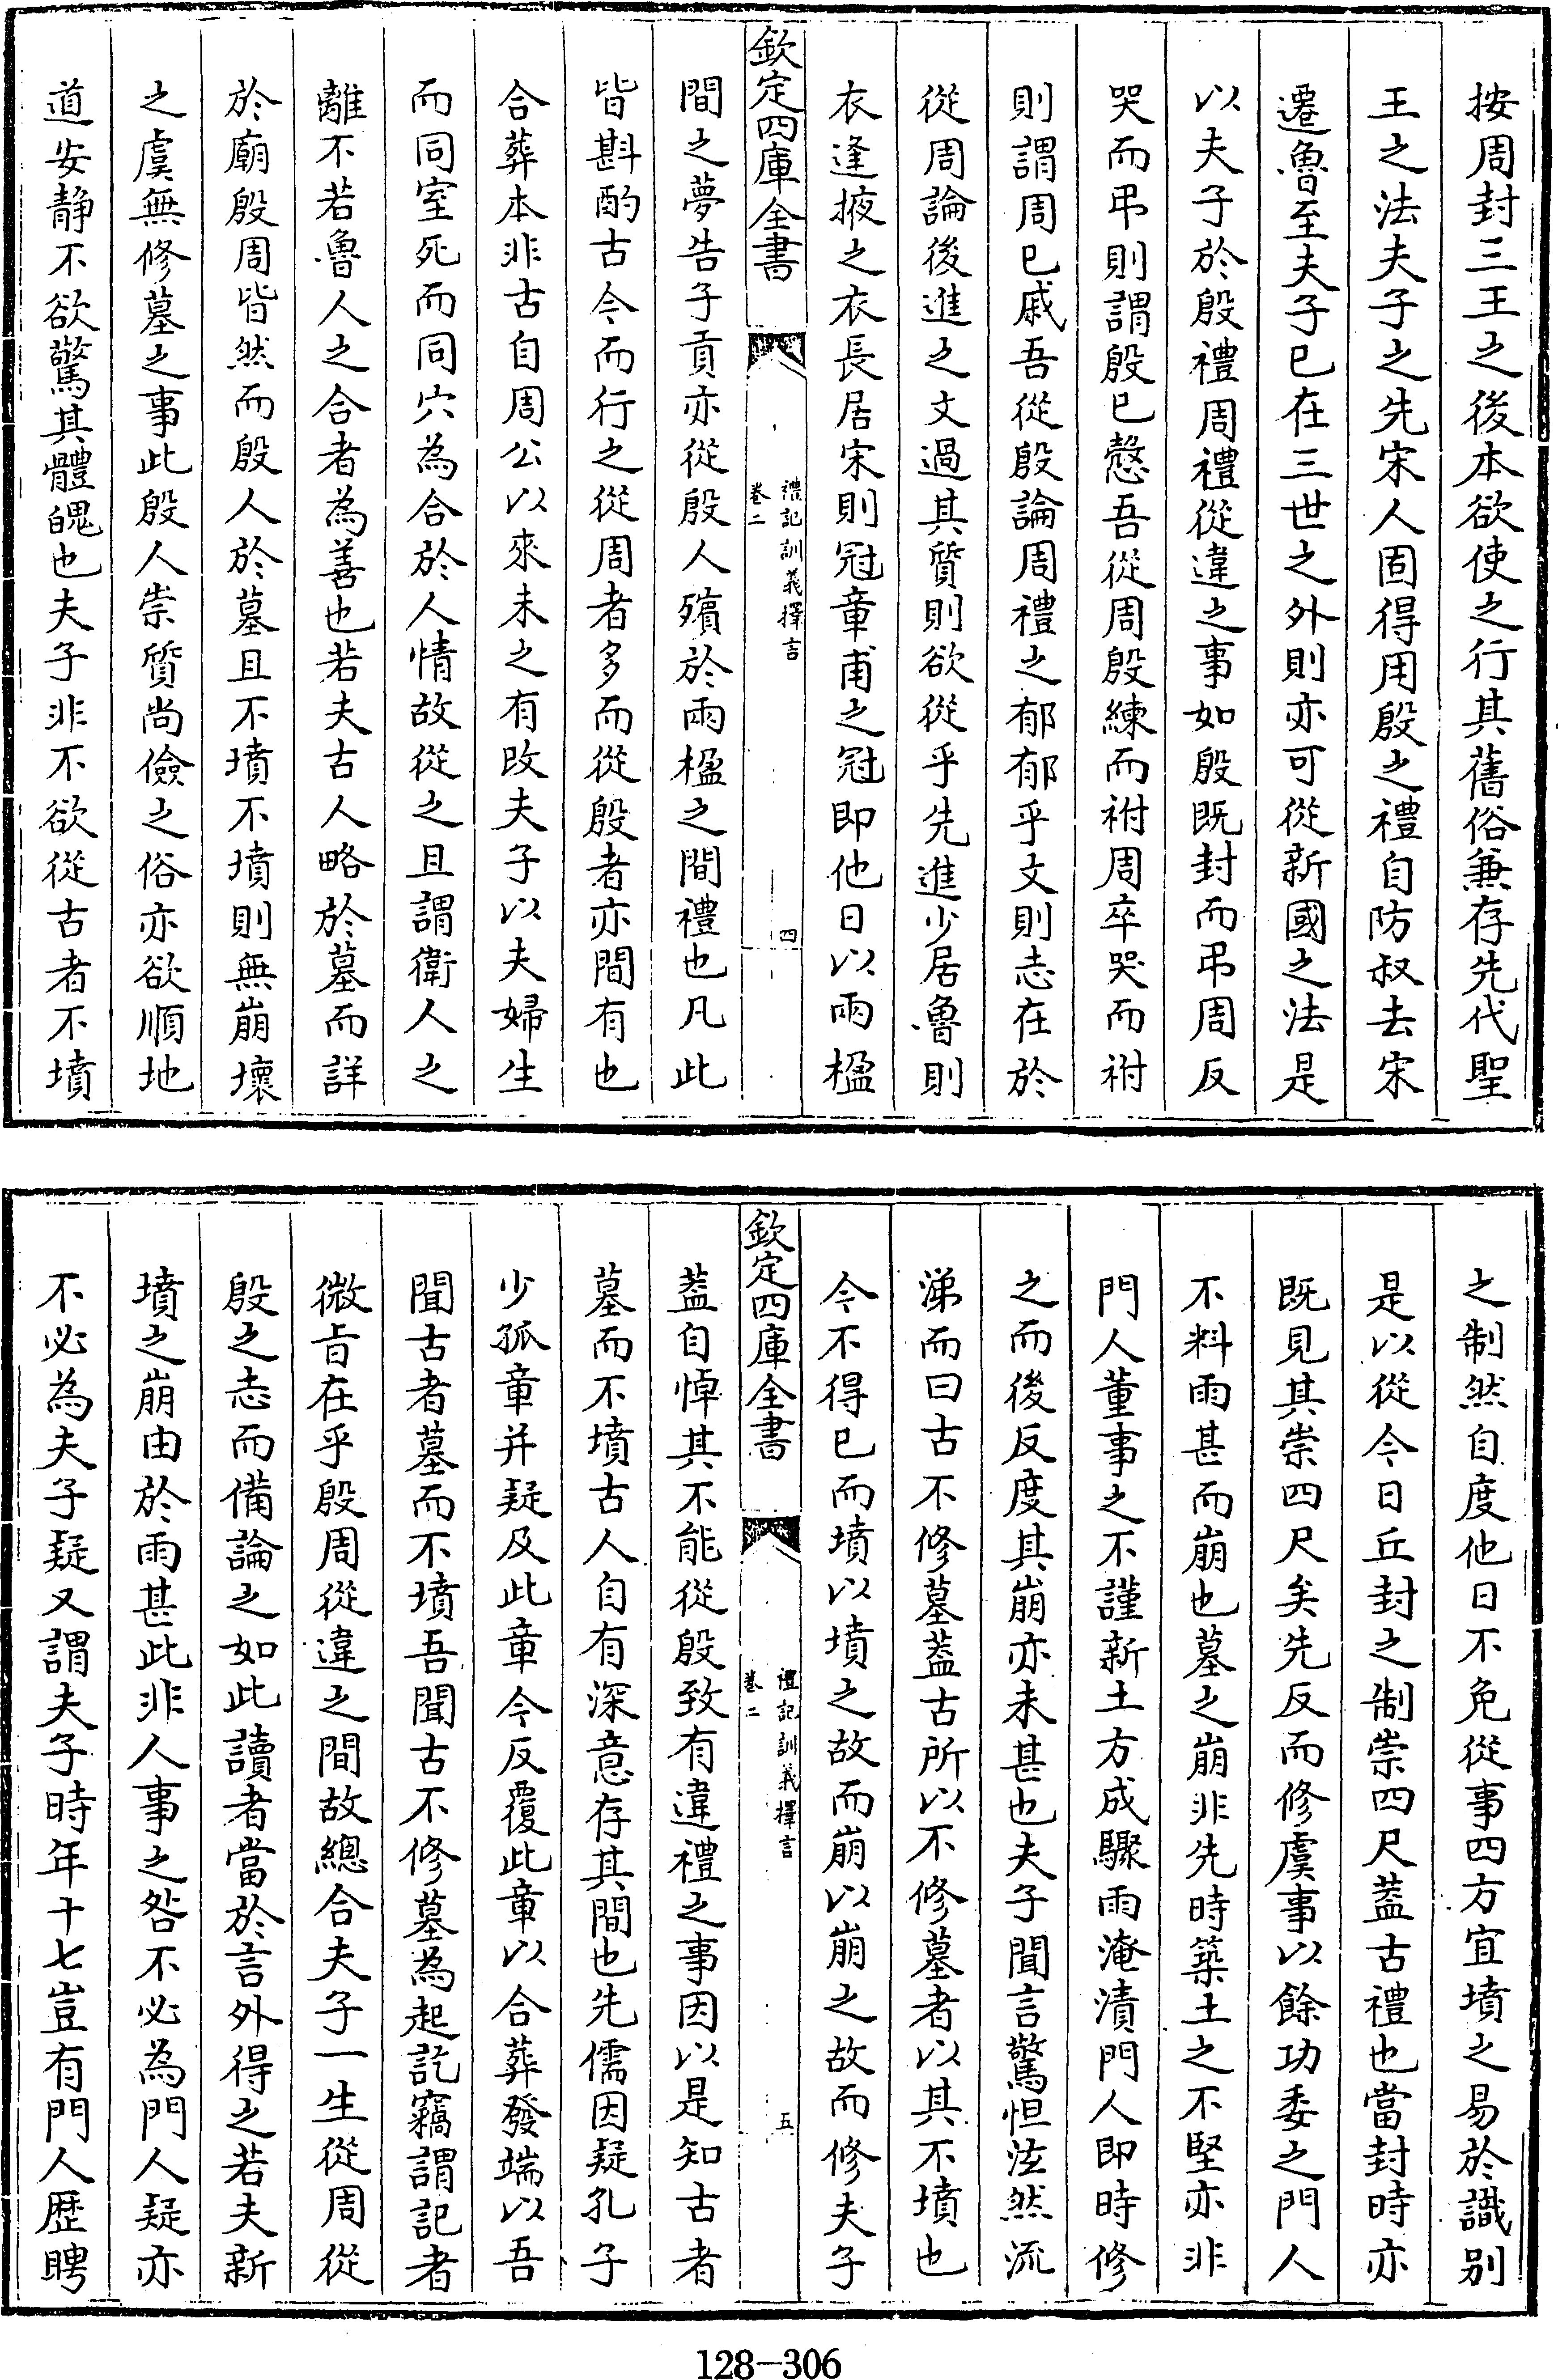 按周封三王之後本欲使之行其舊俗兼存先代聖
王之法夫子之先宋人固得用殷之禮自防叔去宋
遷魯至夫子已在三世之外則亦可從新國之法是
以夫子於殷禮周禮從違之事如殷既封而弔周反
哭而弔則謂殷已慤吾從周殷練而祔周卒哭而祔
則謂周已戚吾從殷論周禮之郁郁乎文則志在於
從周論後進之文過其質則欲從乎先進少居魯則
衣逢掖之衣長居宋則冠章甫之冠即他日以兩楹
欽定四庫全書
禮記訓義擇言
卷二
四
間之夢告子貢亦從殷人殯於兩楹之間禮也凡此
皆斟酌古今而行之從周者多而從殷者亦間有也
合葬本非古自周公以來未之有改夫子以夫婦生
而同室死而同穴為合於人情故從之且謂衛人之
離不若魯人之合者為善也若夫古人略於墓而詳
於廟殷周皆然而殷人於墓且不墳不墳則無崩壞
之虞無修墓之事此殷人崇質尚儉之俗亦欲順地
道安靜不欲驚其體魄也夫子非不欲從古者不墳
之制然自度他日不免從事四方宜墳之易於識別
是以從今日丘封之制崇四尺葢古禮也當封時亦
既見其崇四尺矣先反而修虞事以餘功委之門人
不料雨甚而崩也墓之崩非先時築土之不堅亦非
門人董事之不謹新土方成驟雨淹漬門人即時修
之而後反度其崩亦未甚也夫子聞言驚怛泫然流
涕而曰古不修墓葢古所以不修墓者以其不墳也
今不得已而墳以墳之故而崩以崩之故而修夫子
欽定四庫全書
禮記訓義擇言
卷二
五
葢自悼其不能從殷致有違禮之事因以是知古者
墓而不墳古人自有深意存其間也先儒因疑孔子
少孤章并疑及此章今反覆此章以合葬發端以吾
聞古者墓而不墳吾聞古不修墓為起訖竊謂記者
微㫖在乎殷周從違之間故總合夫子一生從周從
殷之志而備論之如此讀者當於言外得之若夫新
墳之崩由於雨甚此非人事之咎不必為門人疑亦
不必為夫子疑又謂夫子時年十七豈有門人歷聘
128-306